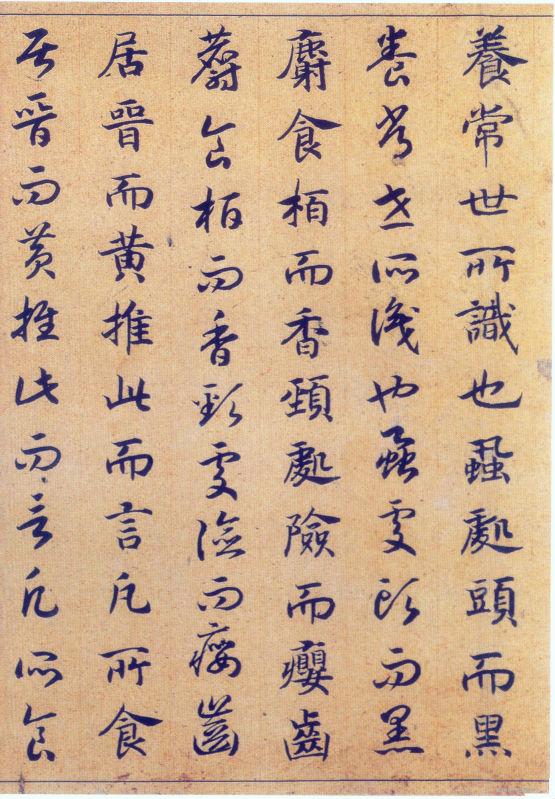 養常世所識也蝨處頭而黑
養常世所識也蝨處頭而黑
麝食栢而香頸處險而癭齒
麝食栢而香頸處險而癭齒
居晉而黃推此而言凡所食
居晉而黃推此而言凡所食